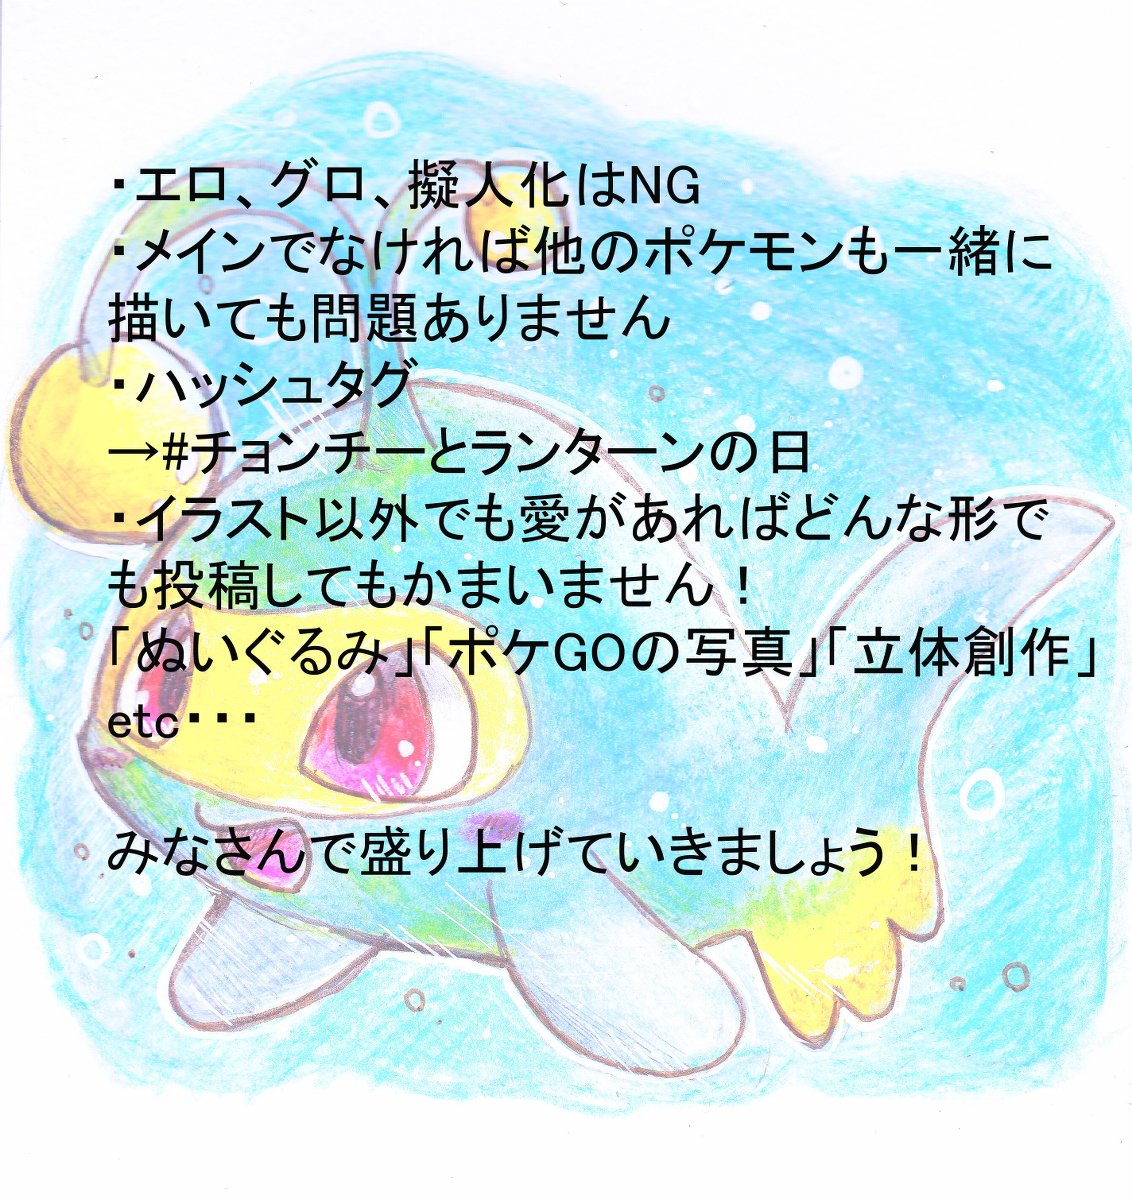 ・エロ、グロ、擬人化はNG
・メインでなければ他のポケモンも一緒に
描いても問題ありません
・ハッシュタグ
→#チョンチーとランターンの日
・イラスト以外でも愛があればどんな形で
も投稿してもかまいません！
「ぬいぐるみ」「ポケGOの写真」「立体創作」
etc・・・
みなさんで盛り上げていきましょう！